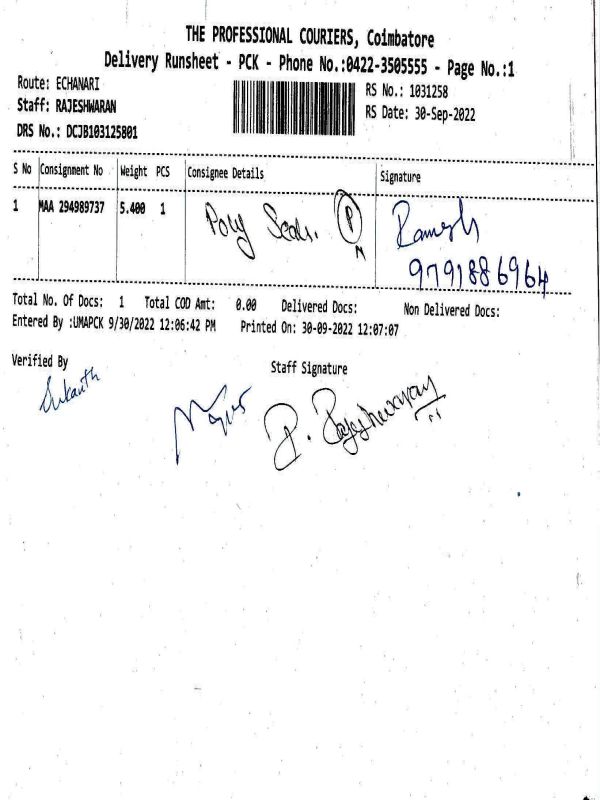 THE PROFESSIONAL COURIERS, Coimbatore
Delivery Runsheet - PCK - Phone No.:0422-3505555 - Page No.:1
Route: ECHANARI RS No.: 1031258
Staff: RAJESHWARAN RS Date: 30-Sep-2022
DRS No.: DCJB103125801
S No Consignment No Weight PCS Consignee Details Signature
1 MAA 294989737 5.400 1 Poly Seals. P Ramesh
M 9791886964
Total No. Of Docs: 1 Total COD Amt: 0.00 Delivered Docs: Non Delivered Docs:
Entered By :UMAPCK 9/30/2022 12:06:42 PM Printed On: 30-09-2022 12:07:07
Verified By Staff Signature
Sukanth
P. Rajeshwaran